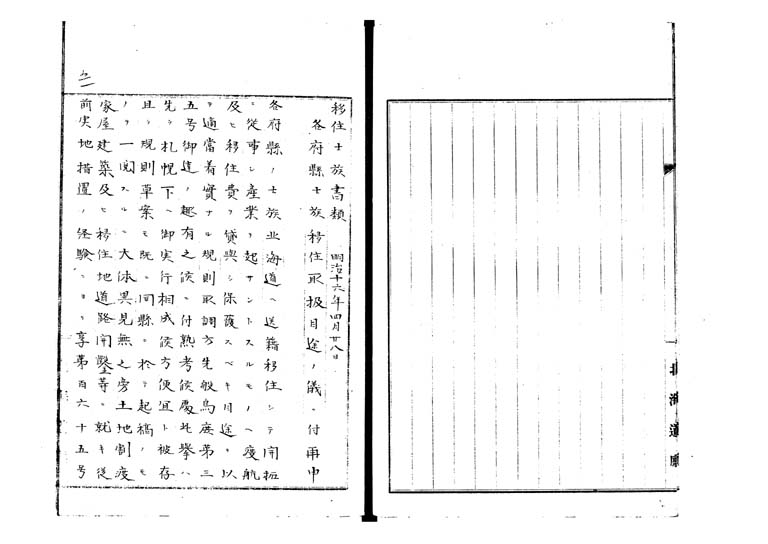 移住士族書類
明治十六年四月廿八日
各府縣士族移住取扱目途ノ儀ニ付再申
各府縣ノ士族北海道ヘ送籍移住シテ開拓
ニ從事シ産業ヲ起サントスルモノヘ渡航
及ヒ移住費ヲ貸與シ保護スベキ目途ヲ以
テ適當着實ナル規則取調方先般鳥庶第三
五号御達ノ趣有之候ニ付熟考候處此擧ハ
先ヅ札幌下ニ御実行相成候方便宜ト被存
且ツ規則草案モ既ニ同縣ニ於テ起稿ノモ
ノヲ一閲スルニ大体異見無之旁土地割渡
家屋建築及ヒ移住地道路開鑿等ニ就キ從
前実地措置ノ経驗ニヨリ享第百六十五号
北海道廳